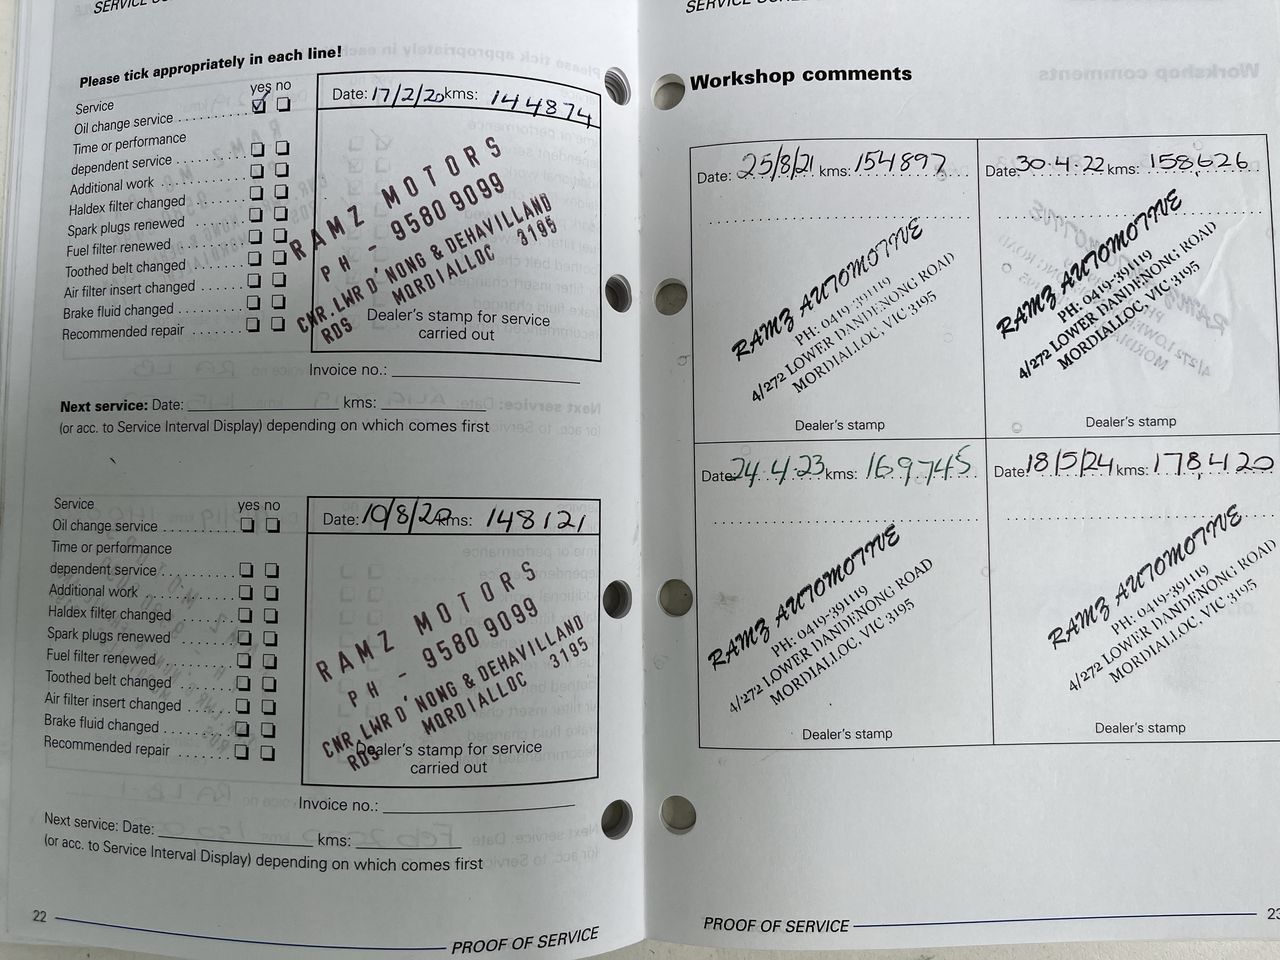 Please tick appropriately in each line!
yes no
Service
Oil change service
Time or performance
dependent service
Additional work
Haldex filter changed
Spark plugs renewed
Fuel filter renewed
Toothed belt changed
Air filter insert changed
Brake fluid changed
Recommended repair
Date: 17/2/20 kms: 144874
RAMZ MOTORS
PH - 9580 9099
CNR. LWR D'NONG & DEHAVILLAND
RDS MORDIALLOC 3195
Dealer's stamp for service
carried out
Invoice no.:
Next service: Date: kms:
(or acc. to Service Interval Display) depending on which comes first
Service yes no
Oil change service
Time or performance
dependent service
Additional work
Haldex filter changed
Spark plugs renewed
Fuel filter renewed
Toothed belt changed
Air filter insert changed
Brake fluid changed
Recommended repair
Date: 10/8/20 kms: 148121
RAMZ MOTORS
PH - 9580 9099
CNR. LWR D'NONG & DEHAVILLAND
RDS MORDIALLOC 3195
Dealer's stamp for service
carried out
Invoice no.:
Next service: Date: kms:
(or acc. to Service Interval Display) depending on which comes first
22
PROOF OF SERVICE
Workshop comments
Date: 25/8/21 kms: 154897
RAMZ AUTOMOTIVE
PH: 0419-391119
4/272 LOWER DANDENONG ROAD
MORDIALLOC, VIC 3195
Dealer's stamp
Date: 30.4.22 kms: 158,626
RAMZ AUTOMOTIVE
PH: 0419-391119
4/272 LOWER DANDENONG ROAD
MORDIALLOC, VIC 3195
Dealer's stamp
Date: 24.4.23 kms: 169745
RAMZ AUTOMOTIVE
PH: 0419-391119
4/272 LOWER DANDENONG ROAD
MORDIALLOC, VIC 3195
Dealer's stamp
Date: 18/5/24 kms: 178,420
RAMZ AUTOMOTIVE
PH: 0419-391119
4/272 LOWER DANDENONG ROAD
MORDIALLOC, VIC 3195
Dealer's stamp
PROOF OF SERVICE
23